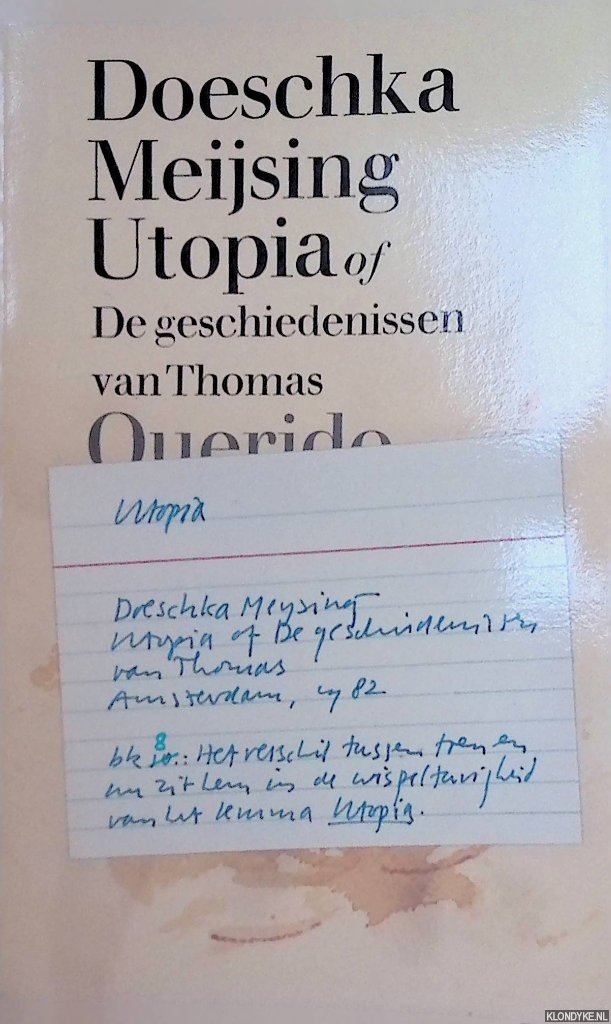 Doeschka
Meijsing
Utopia of
De geschiedenissen
van Thomas
Querido
Utopia
Doeschka Meysing
Utopia of De geschiedenissen
van Thomas
Amsterdam, 1982
blz 8.: Het verschil tussen toen en
nu zit hem in de wispelturigheid
van het lemma Utopia.
KLONDYKE.NL